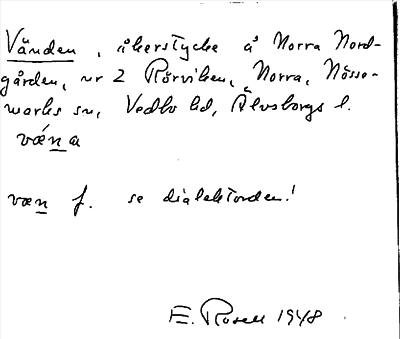 Vänden, åkerstycke å Norra Nord-
gården, nr 2 Rörviken, Norra, Nösse-
marks sn, Vedbo hd, Älvsborgs l.
væ´na
væn f. se dialektorden!
E. Rosell 1948